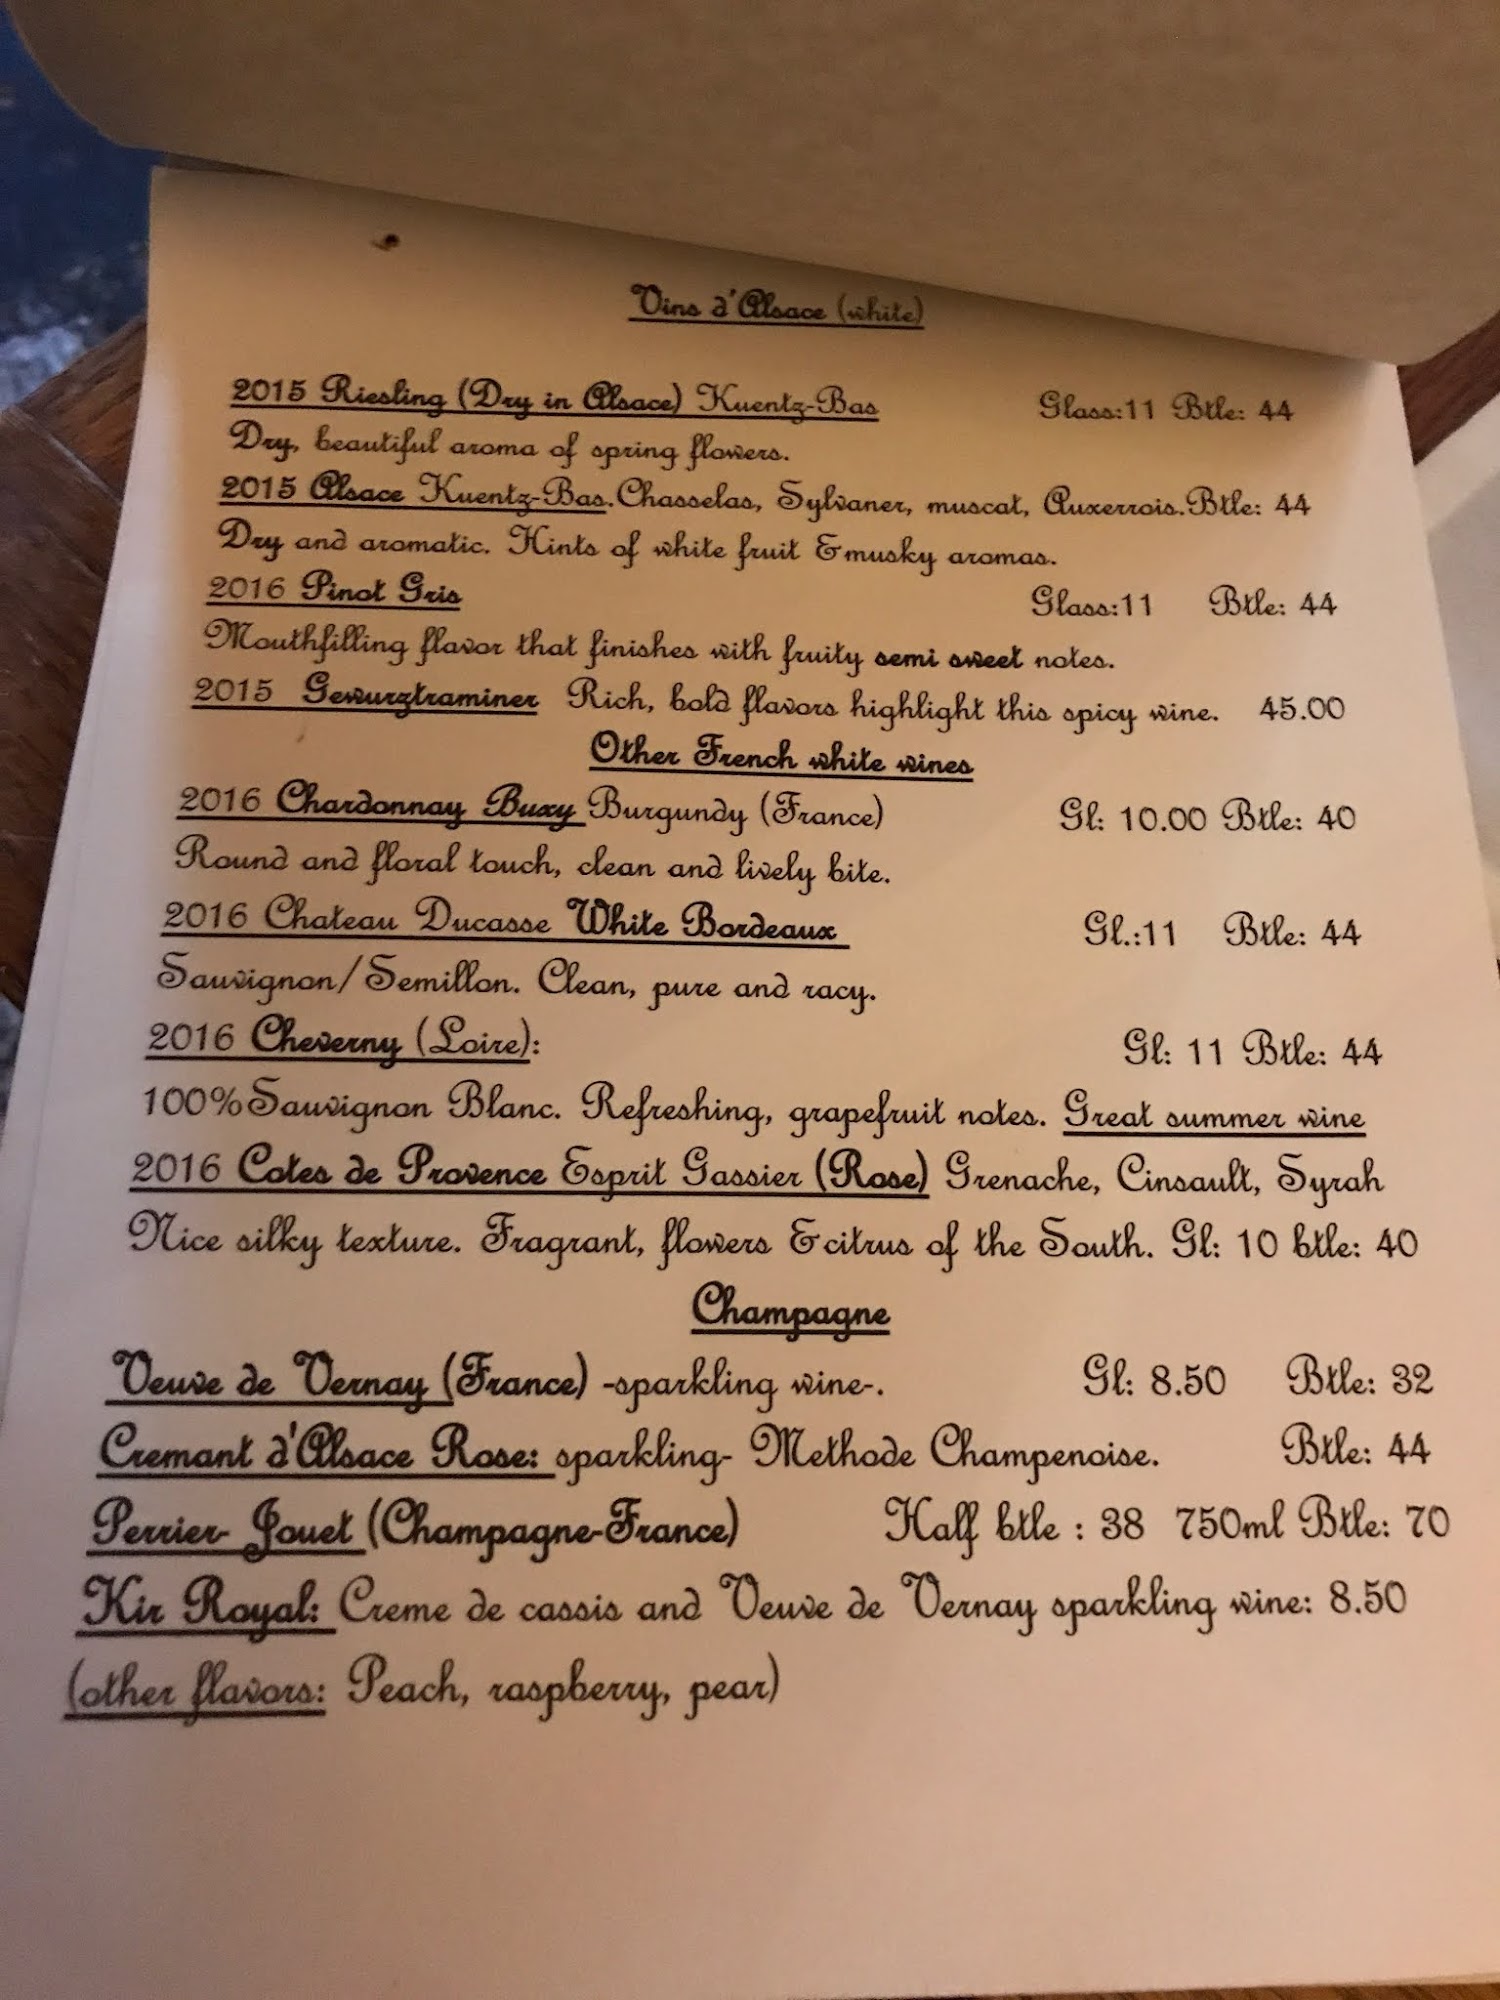 Vins d'Alsace (white)
2015 Riesling (Dry in Alsace) Kuentz-Bas Glass:11 Btle: 44
Dry, beautiful aroma of spring flowers.
2015 Alsace Kuentz-Bas.Chasselas, Sylvaner, muscat, Auxerrois.Btle: 44
Dry and aromatic. Hints of white fruit & musky aromas.
2016 Pinot Gris Glass:11 Btle: 44
Mouthfilling flavor that finishes with fruity semi sweet notes.
2015 Gewurztraminer Rich, bold flavors highlight this spicy wine. 45.00
Other French white wines
2016 Chardonnay Buxy Burgundy (France) Gl: 10.00 Btle: 40
Round and floral touch, clean and lively bite.
2016 Chateau Ducasse White Bordeaux Gl.:11 Btle: 44
Sauvignon/Semillon. Clean, pure and racy.
2016 Cheverny (Loire): Gl: 11 Btle: 44
100%Sauvignon Blanc. Refreshing, grapefruit notes. Great summer wine
2016 Cotes de Provence Esprit Gassier (Rose) Grenache, Cinsault, Syrah
Nice silky texture. Fragrant, flowers & citrus of the South. Gl: 10 btle: 40
Champagne
Veuve de Vernay (France) -sparkling wine-. Gl: 8.50 Btle: 32
Cremant d'Alsace Rose: sparkling- Methode Champenoise. Btle: 44
Perrier- Jouet (Champagne-France) Half btle : 38 750ml Btle: 70
Kir Royal: Creme de cassis and Veuve de Vernay sparkling wine: 8.50
(other flavors: Peach, raspberry, pear)